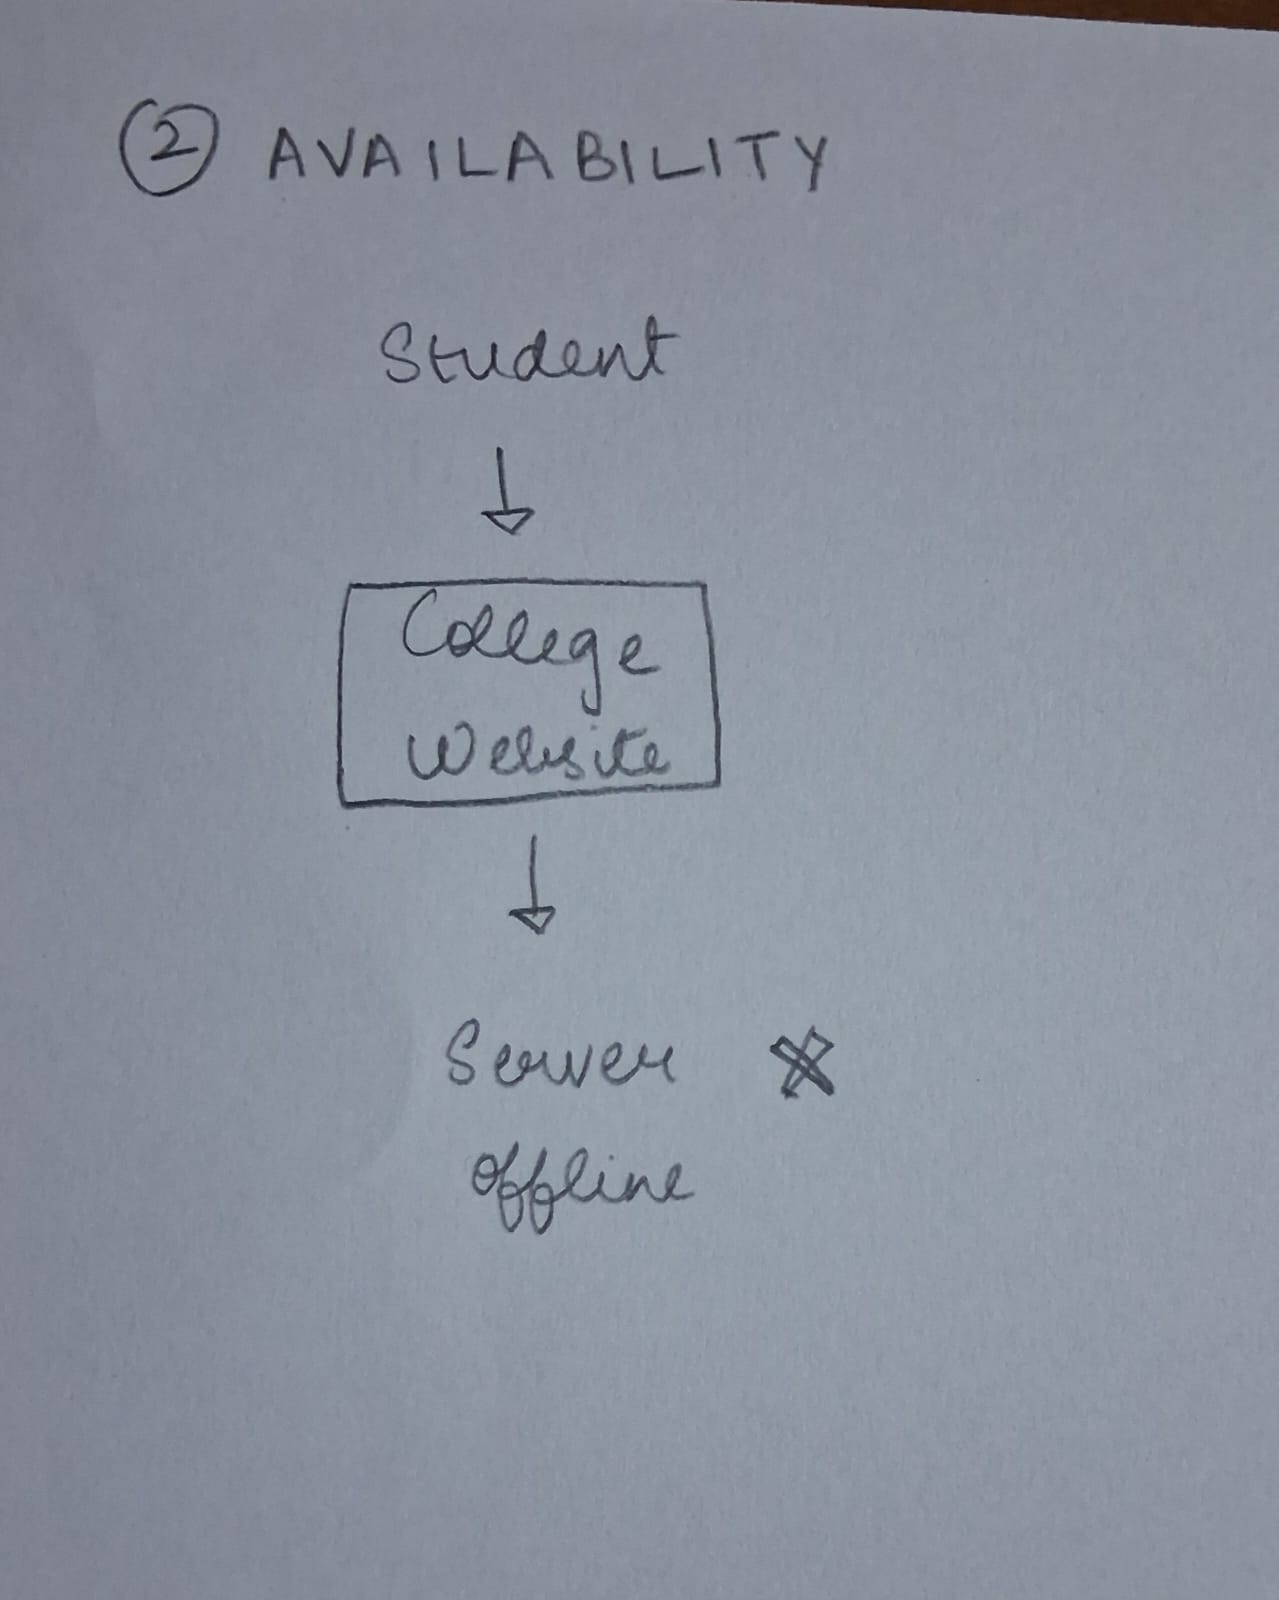 2 AVAILABILITY
Student
College
Website
Server
offline